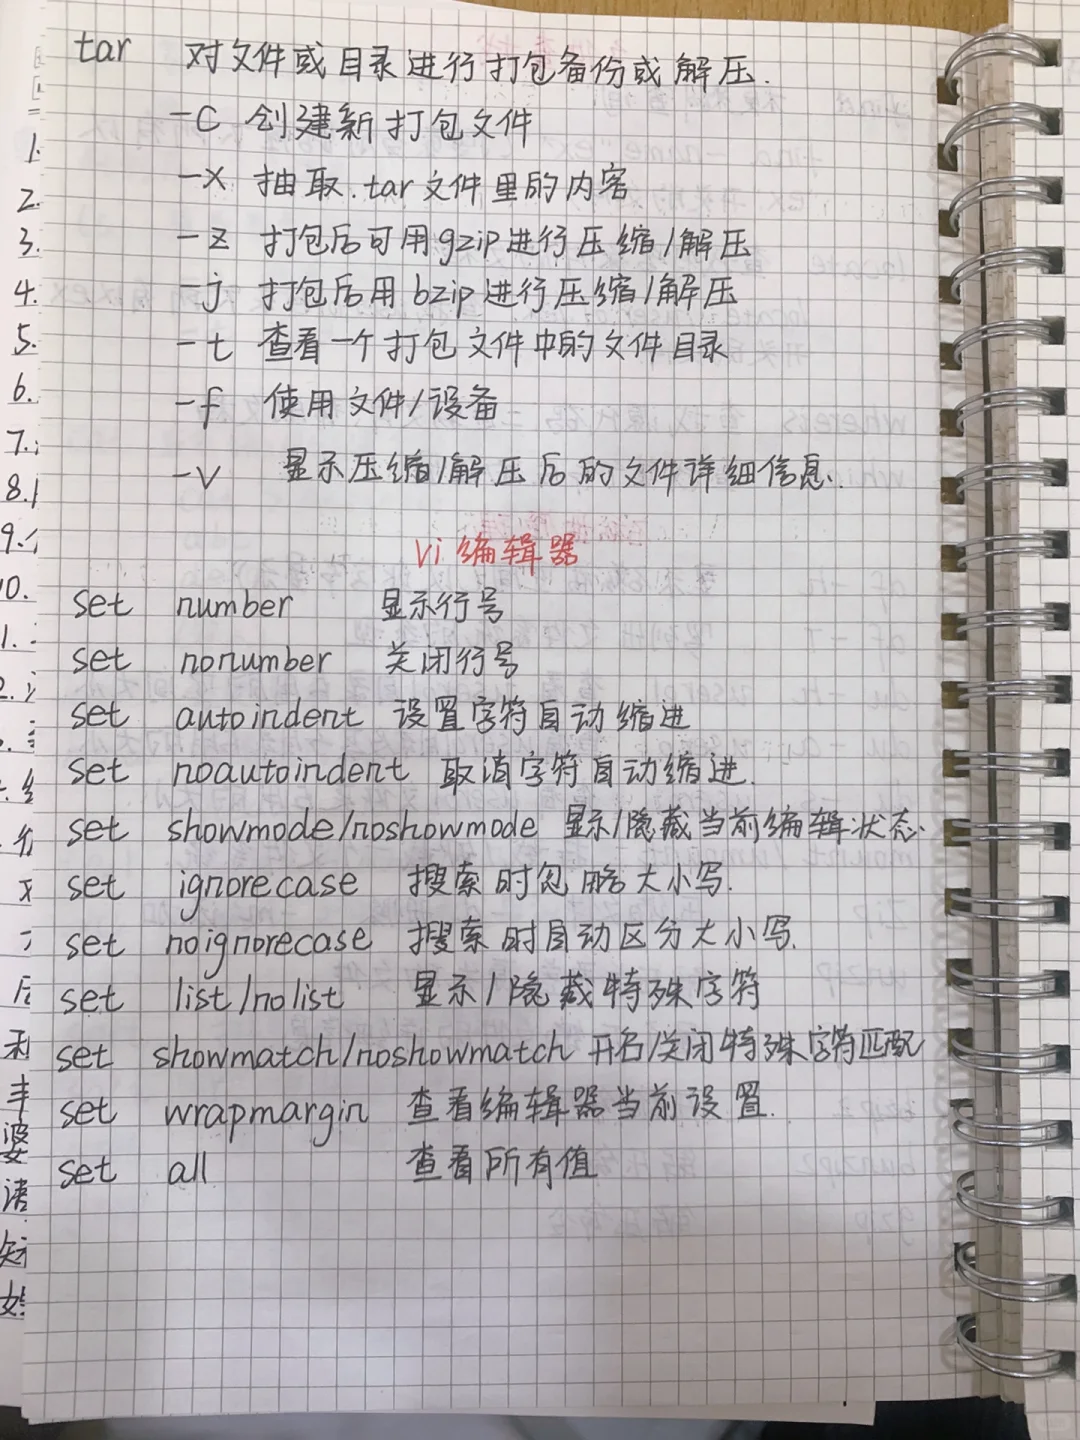 tar 对文件或目录进行打包备份或解压.
-c 创建新打包文件
-x 抽取.tar文件里的内容
-z 打包后可用gzip进行压缩/解压
-j 打包后用bzip进行压缩/解压
-t 查看一个打包文件中的文件目录
-f 使用文件/设备
-v 显示压缩/解压后的文件详细信息.
vi编辑器
set number 显示行号
set nonumber 关闭行号
set autoindent 设置字符自动缩进
set noautoindent 取消字符自动缩进.
set showmode/noshowmode 显示/隐藏当前编辑状态.
set ignorecase 搜索时忽略大小写.
set noignorecase 搜索时自动区分大小写.
set list/nolist 显示/隐藏特殊字符
set showmatch/noshowmatch 开启/关闭特殊字符匹配
set wrapmargin 查看编辑器当前设置.
set all 查看所有值
1.
2.
3.
4.
5.
6.
7.
8.
9.
10.